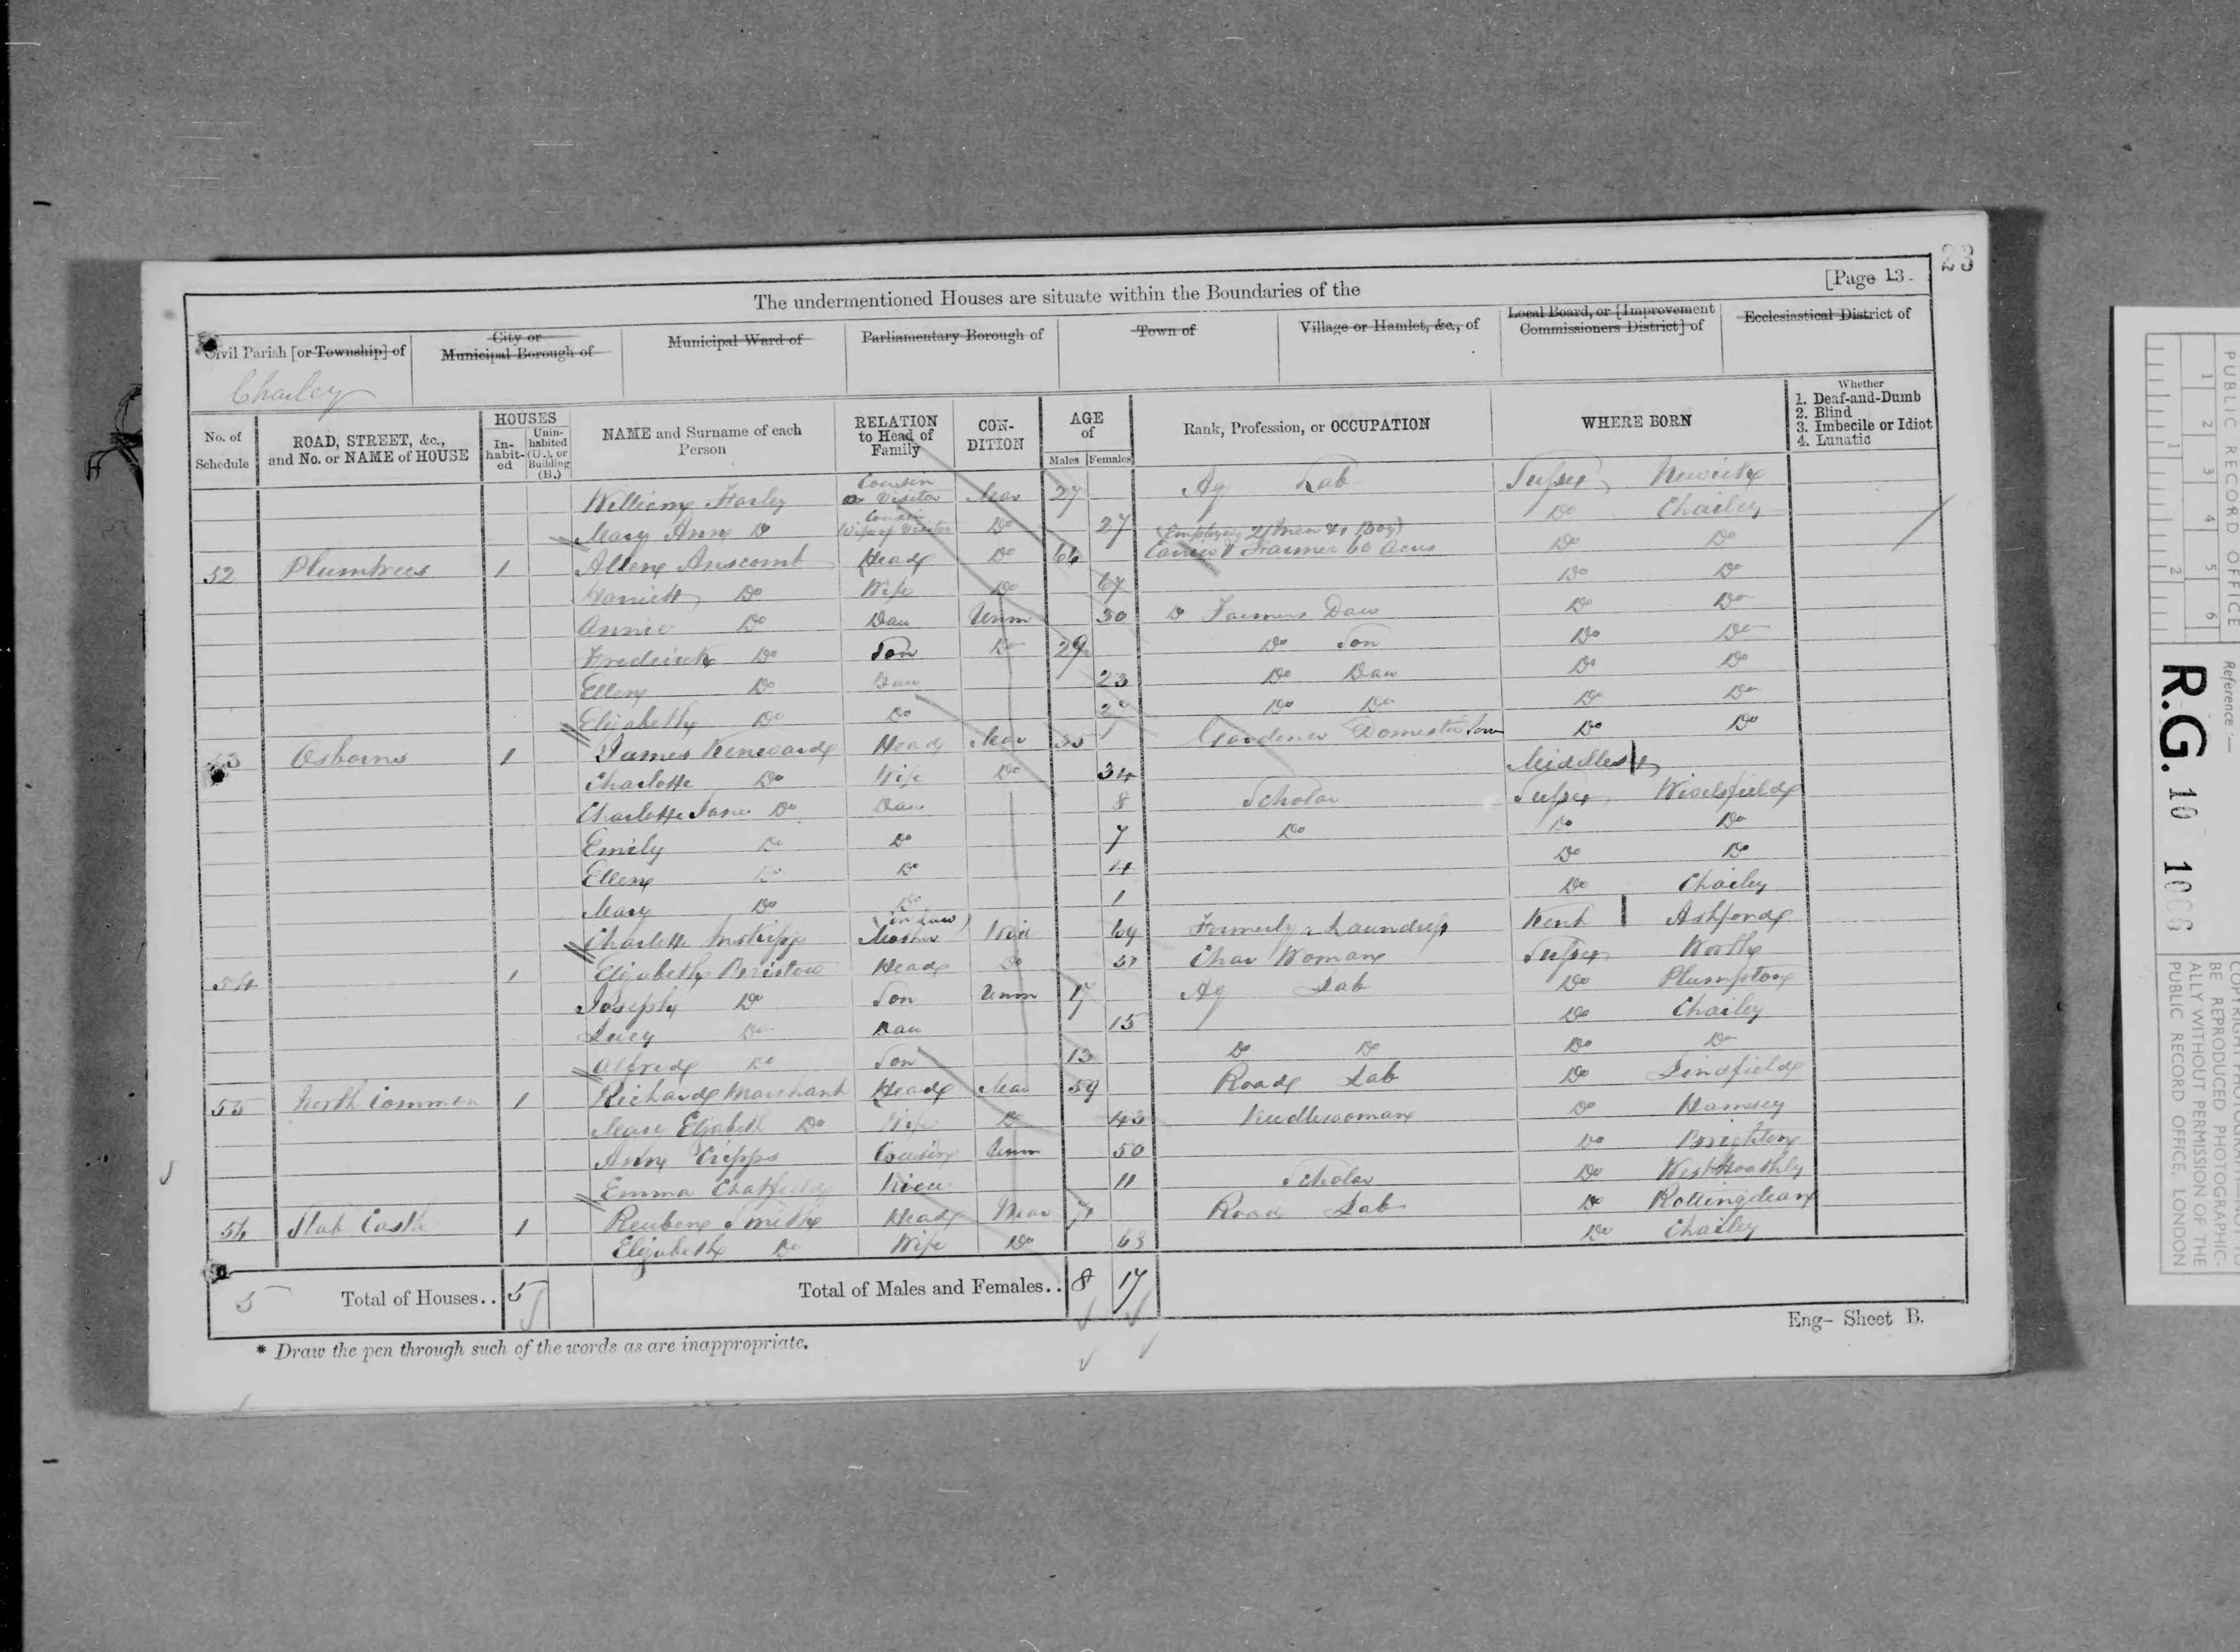 23
The undermentioned Houses are situate within the Boundaries of the [Page 13.
Civil Parish [or Township] of City or Municipal Borough of Municipal Ward of Parliamentary Borough of Town of Village or Hamlet, &c., of Local Board, or [Improvement Commissioners District] of Ecclesiastical District of
Chailey
No. of Schedule ROAD, STREET, &c., and No. or NAME of HOUSE HOUSES In-habit-ed Unin-habited (U.), or Building (B.) NAME and Surname of each Person RELATION to Head of Family CON-DITION AGE of Males Females Rank, Profession, or OCCUPATION WHERE BORN Whether 1. Deaf-and-Dumb 2. Blind 3. Imbecile or Idiot 4. Lunatic
William Cousin Visitor Mar 27 Ag Lab Sussex Newick
Mary Ann Do Cousin Wife of Visitor Do 27 Do Chailey
(Employing 2 Men & 1 Boy)
52 Plumtrees 1 Allen Anscomb Head Do 66 Farmer 60 Acres Do Do
Do Wife Do 67 Do Do
Annie Do Dau Unm 30 Farmers Dau Do Do
Frederick Do Son Do 29 Do Son Do Do
Ellen Do Dau 23 Do Dau Do Do
Elizabeth Do Do Do Do Do Do
53 Osborns 1 James Kenward Head Mar 35 Gardener Domestic Serv Do Do
Charlotte Do Wife Do 34 Middlesex
Charlotte Jane Do Dau 8 Scholar Sussex Wivelsfield
Emily Do Do 7 Do Do Do
Ellen Do Do 4 Do Do
Mary Do Do 1 Do Chailey
Charlotte Inskipp Mother (in Law) Wid 64 Formerly a Laundress Kent Ashford
54 1 Elizabeth Bristow Head Do 51 Char Woman Sussex Worth
Joseph Do Son Unm 17 Ag Lab Do Plumpton
Lucy Do Dau 15 Do Chailey
Alfred Do Son 13 Do Do Do Do
55 North Common 1 Richard Marchant Head Mar 59 Road Lab Do Lindfield
Elizabeth Do Wife Do 43 Needlewoman Do Hamsey
Ann Cripps Cousin Unm 50 Do Brighton
Emma Chatfield Niece 11 Scholar Do West Hoathly
56 Slab Castle 1 Reuben Smith Head Mar 71 Road Lab Do Rottingdean
Elizabeth Do Wife Do 63 Do Chailey
5 Total of Houses.. 5 Total of Males and Females.. 8 17
Eng- Sheet B.
* Draw the pen through such of the words as are inappropriate.
PUBLIC RECORD OFFICE
1 2 3 4 5 6
1 2
Reference :—
R.G. 10
BE REPRODUCED PHOTOGRAPHIC-
ALLY WITHOUT PERMISSION OF THE
PUBLIC RECORD OFFICE, LONDON